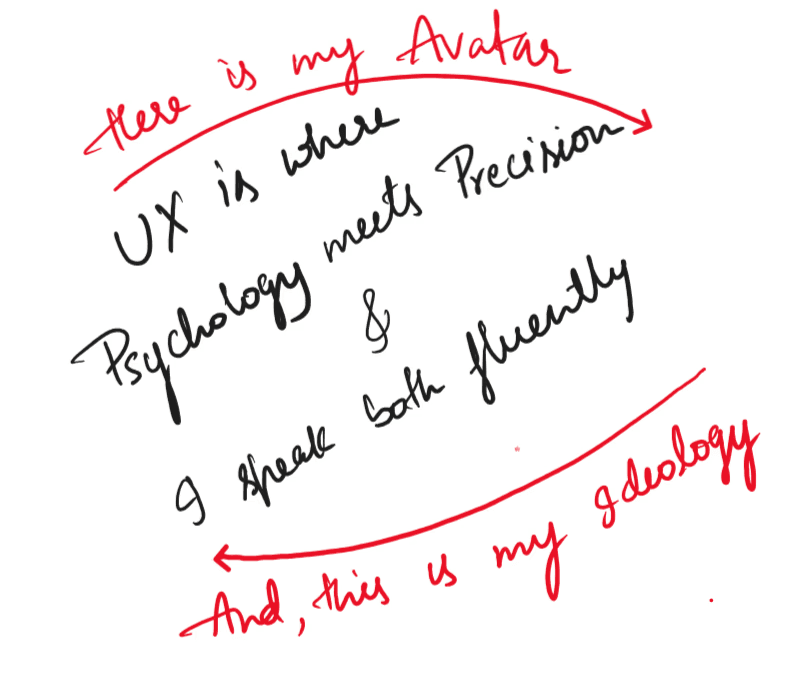 Here is my Avatar
UX is where
Psychology meets Precision
&
I speak both fluently
And, this is my Ideology